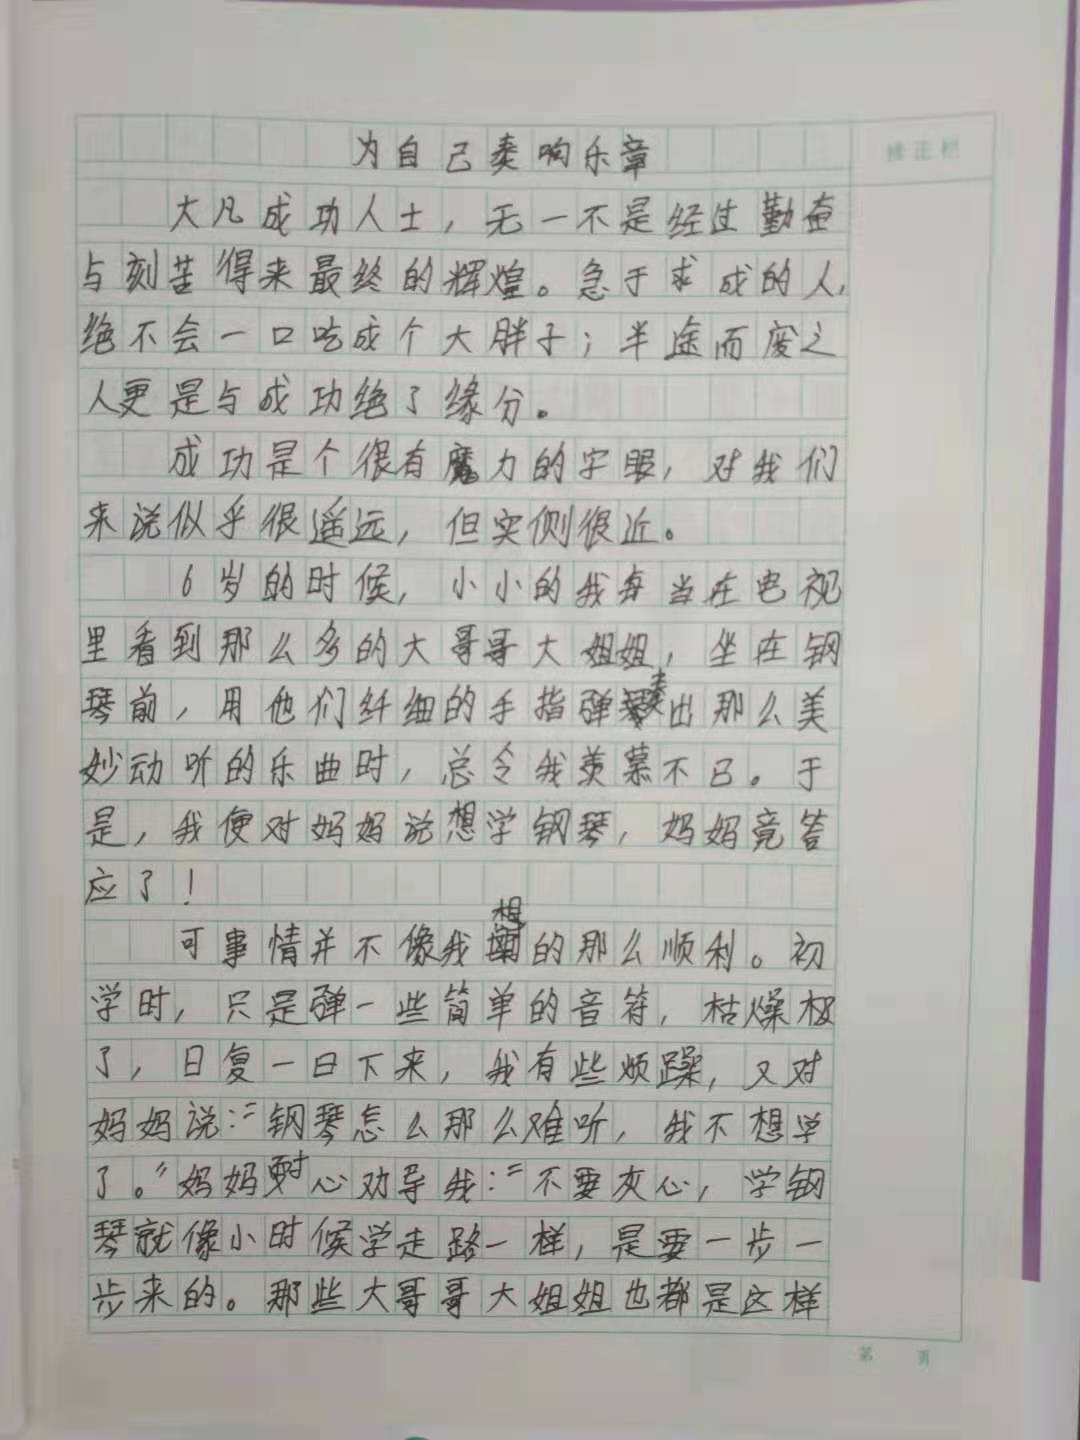 修正栏
为自己奏响乐章
大凡成功人士，无一不是经过勤奋
与刻苦得来最终的辉煌。急于求成的人，
绝不会一口吃成个大胖子；半途而废之
人更是与成功绝了缘分。
成功是个很有魔力的字眼，对我们
来说似乎很遥远，但实侧很近。
6岁的时候，小小的我每当在电视
里看到那么多的大哥哥大姐姐，坐在钢
琴前，用他们纤细的手指弹奏出那么美
妙动听的乐曲时，总令我羡慕不已。于
是，我便对妈妈说想学钢琴，妈妈竟答
应了！
可事情并不像我想的那么顺利。初
学时，只是弹一些简单的音符，枯燥极
了，日复一日下来，我有些烦躁，又对
妈妈说：“钢琴怎么那么难听，我不想学
了。”妈妈耐心劝导我：“不要灰心，学钢
琴就像小时候学走路一样，是要一步一
步来的。那些大哥哥大姐姐也都是这样
第 页